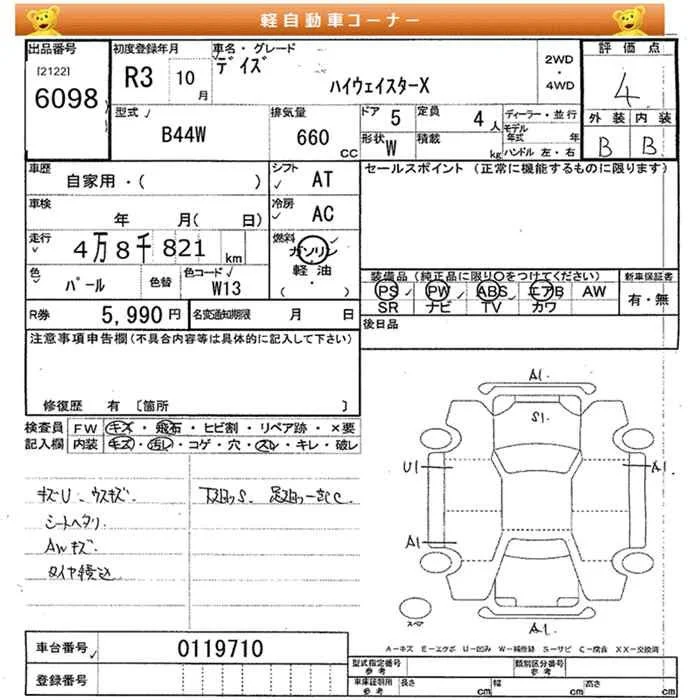 軽自動車コーナー
出品番号
[2122]
6098
初度登録年月
R3 10 月
車名・グレード
デイズ
ハイウェイスターX
2WD
・
4WD
評価点
4
外装 内装
B B
型式
B44W
排気量
660 CC
ドア 5
定員 4 人
形状 W
積載 kg
ディーラー・並行
モデル年式 年
ハンドル 左・右
車歴
自家用・( )
シフト
AT
セールスポイント (正常に機能するものに限ります)
車検
年 月( 日)
冷房
AC
走行
4万8千821 km
燃料
ガソリン
軽油
( ・ )
色
パール
色替
色コード
W13
装備品 (純正品に限り○をつけてください)
PS PW ABS エアB AW
SR ナビ TV カワ
新車保証書
有・無
R券 5,990円
名変通知期限 月 日
後日品
注意事項申告欄(不具合内容等は具体的に記入して下さい)
修復歴 有 〔箇所 〕
検査員
記入欄
FW キズ・飛石・ヒビ割・リペア跡・×要
内装 キズ・汚レ・コゲ・穴・スレ・キレ・破レ
キズU、ウスキズ
シートヘタリ
AWキズ
下廻りS.
A1.
S1.
U1
A1.
A1
A1.
スペア
A-キズ E-エクボ U-凹み W-補修跡 S-サビ C-腐食 XX-交換済
車台番号 0119710
登録番号
型式指定番号
参考
類別区分番号
参考
車庫証明用
参考
長さ cm 幅 cm 高さ cm